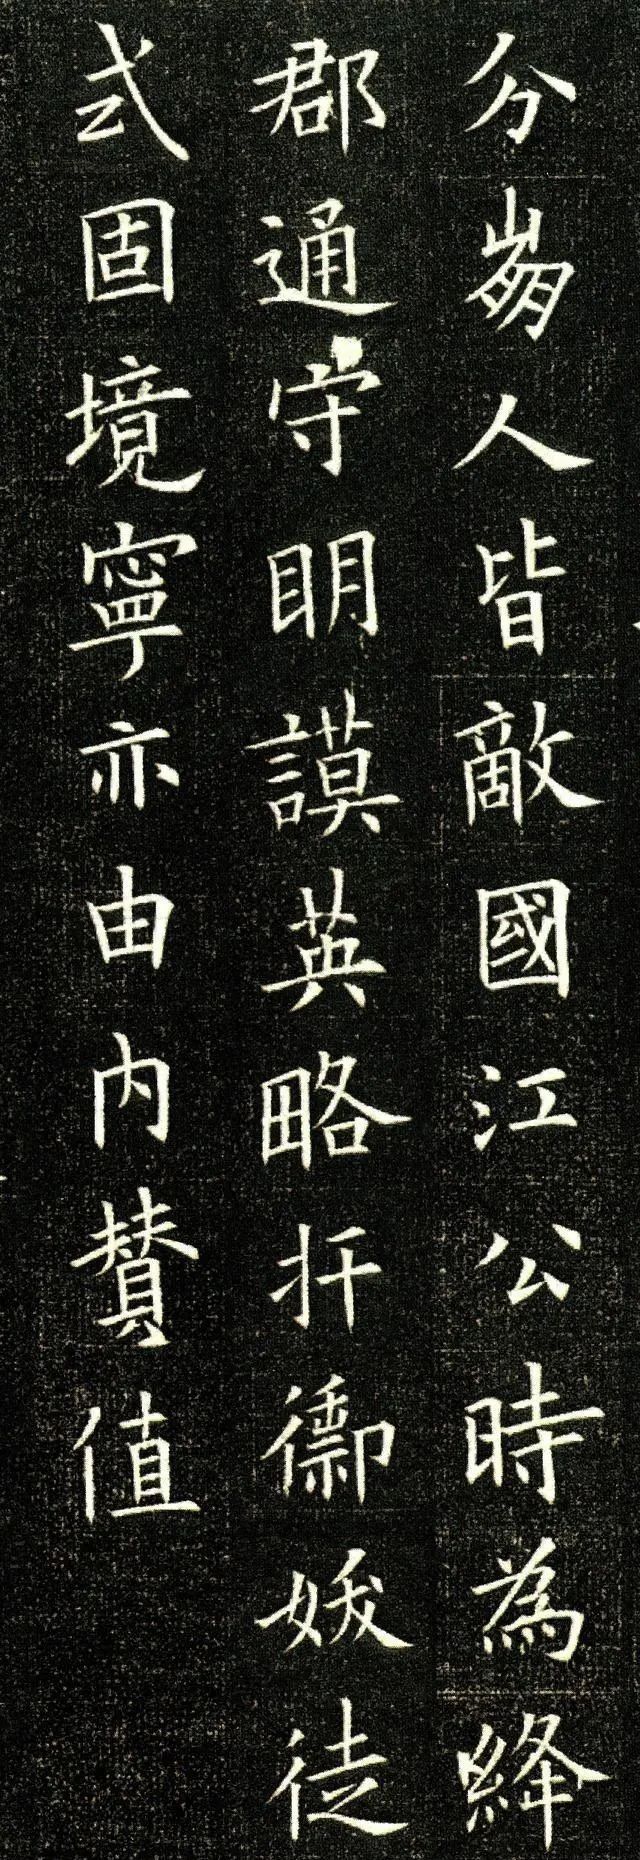 分崩人皆敵國江公時為絳
郡通守眀謨英略扞禦妖徒
式固境寧亦由内賛值